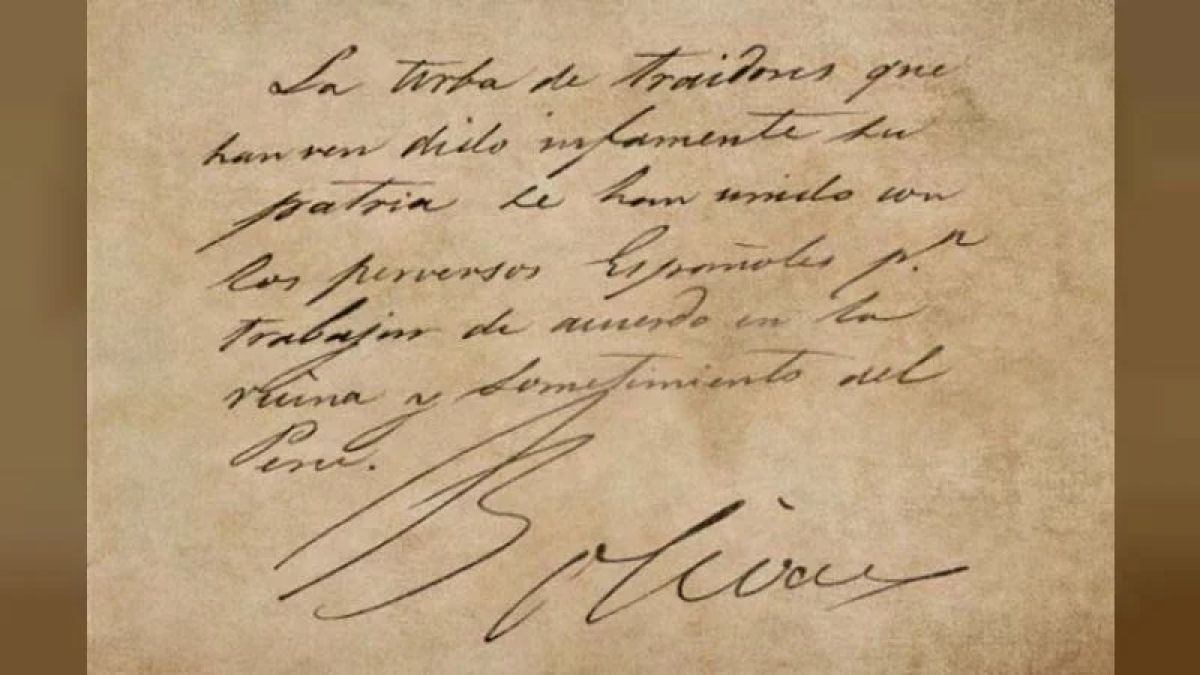 La turba de traidores que
han ven dido infamente su
patria se han unido con
los perversos Españoles p.ª
trabajar de acuerdo en la
ruina y sometimiento del
Perú.
Bolívar